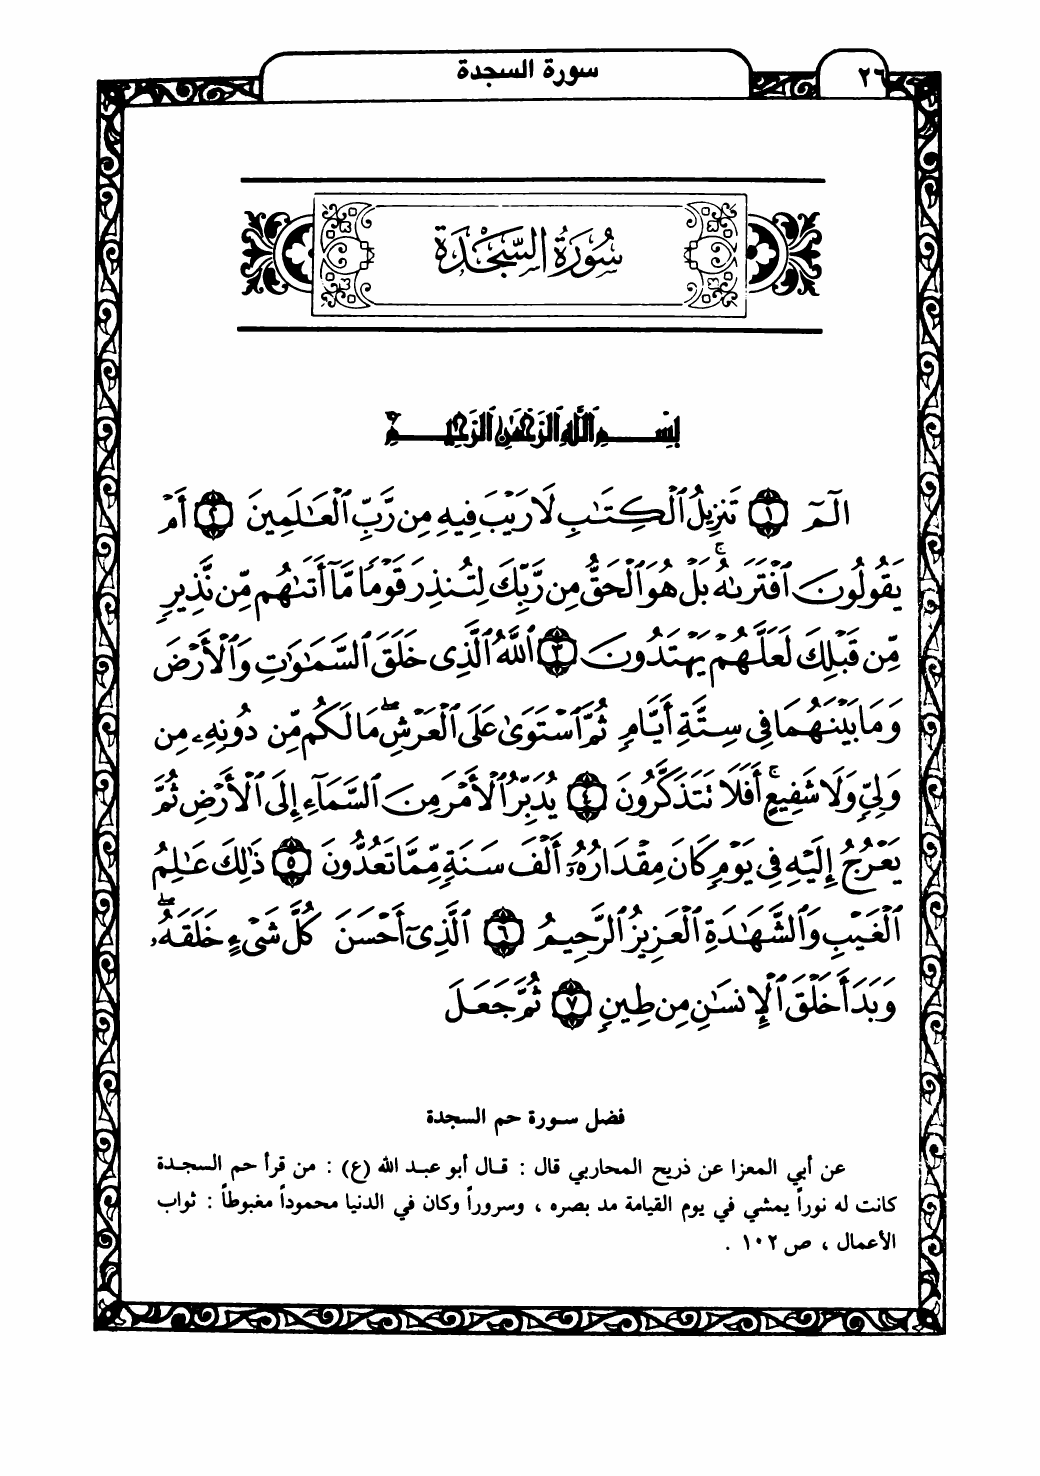 سورة السجدة
٢٦
سُورَةُ السَّجْدَة
بِسْمِ ٱللَّهِ ٱلرَّحْمَٰنِ ٱلرَّحِيمِ
الٓمٓ ١ تَنزِيلُ ٱلْكِتَٰبِ لَا رَيْبَ فِيهِ مِن رَّبِّ ٱلْعَٰلَمِينَ ٢ أَمْ
يَقُولُونَ ٱفْتَرَىٰهُ ۚ بَلْ هُوَ ٱلْحَقُّ مِن رَّبِّكَ لِتُنذِرَ قَوْمًا مَّآ أَتَىٰهُم مِّن نَّذِيرٍ
مِّن قَبْلِكَ لَعَلَّهُمْ يَهْتَدُونَ ٣ ٱللَّهُ ٱلَّذِى خَلَقَ ٱلسَّمَٰوَٰتِ وَٱلْأَرْضَ
وَمَا بَيْنَهُمَا فِى سِتَّةِ أَيَّامٍ ثُمَّ ٱسْتَوَىٰ عَلَى ٱلْعَرْشِ ۖ مَا لَكُم مِّن دُونِهِۦ مِن
وَلِىٍّ وَلَا شَفِيعٍ ۚ أَفَلَا تَتَذَكَّرُونَ ٤ يُدَبِّرُ ٱلْأَمْرَ مِنَ ٱلسَّمَآءِ إِلَى ٱلْأَرْضِ ثُمَّ
يَعْرُجُ إِلَيْهِ فِى يَوْمٍ كَانَ مِقْدَارُهُۥٓ أَلْفَ سَنَةٍ مِّمَّا تَعُدُّونَ ٥ ذَٰلِكَ عَٰلِمُ
ٱلْغَيْبِ وَٱلشَّهَٰدَةِ ٱلْعَزِيزُ ٱلرَّحِيمُ ٦ ٱلَّذِىٓ أَحْسَنَ كُلَّ شَىْءٍ خَلَقَهُۥ ۖ
وَبَدَأَ خَلْقَ ٱلْإِنسَٰنِ مِن طِينٍ ٧ ثُمَّ جَعَلَ
فضل سورة حم السجدة
عن أبي المعزا عن ذريح المحاربي قال : قال أبو عبد الله (ع) : من قرأ حم السجدة
كانت له نوراً يمشي في يوم القيامة مد بصره ، وسروراً وكان في الدنيا محموداً مغبوطاً : ثواب
الأعمال ، ص ١٠٢ .